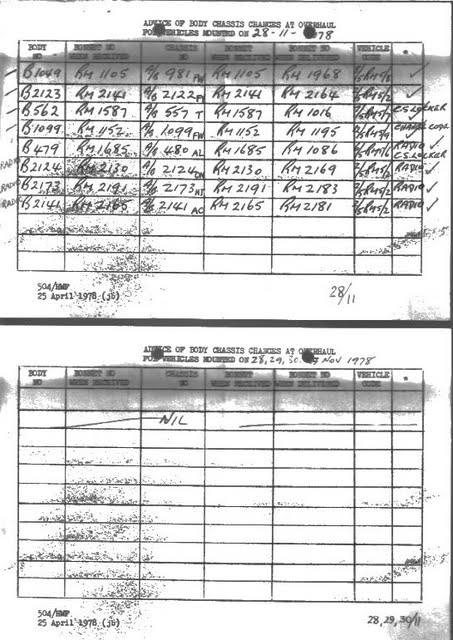 ADVICE OF BODY CHASSIS CHANGES AT OVERHAUL
FOR VEHICLES MOUNTED ON 28-11-1978
BODY NO BONNET NO WHEN RECEIVED CHASSIS NO BONNET WHEN DELIVERED VEHICLE CODE *
B1049 RM1105 981 FW RM1105 RM1968 ✓
B2123 RM2141 2122 RM2141 RM2164 5RM5/2 ✓
B562 RM1587 557 T RM1587 RM1016 CS LOCKER ✓
B1099 RM1152 1099 FW RM1152 RM1195 CHANGE CODE
B479 RM1685 480 AL RM1685 RM1086 RADIO ✓ CS.LOCKER
RADIO B2124 RM2130 2124 RM2130 RM2169 RADIO ✓
RADIO B2173 RM2191 2173 RM2191 RM2183 RADIO ✓
RADIO B2141 RM2165 2141 AC RM2165 RM2181 5RM5/2 RADIO ✓
504/HMP
25 April 1978 (jo)
28/11
ADVICE OF BODY CHASSIS CHANGES AT OVERHAUL
FOR VEHICLES MOUNTED ON 28,29,30. NOV 1978
BODY NO BONNET NO WHEN RECEIVED CHASSIS NO BONNET WHEN DELIVERED VEHICLE CODE *
NIL
504/HMP
25 April 1978 (jo)
28,29,30/11